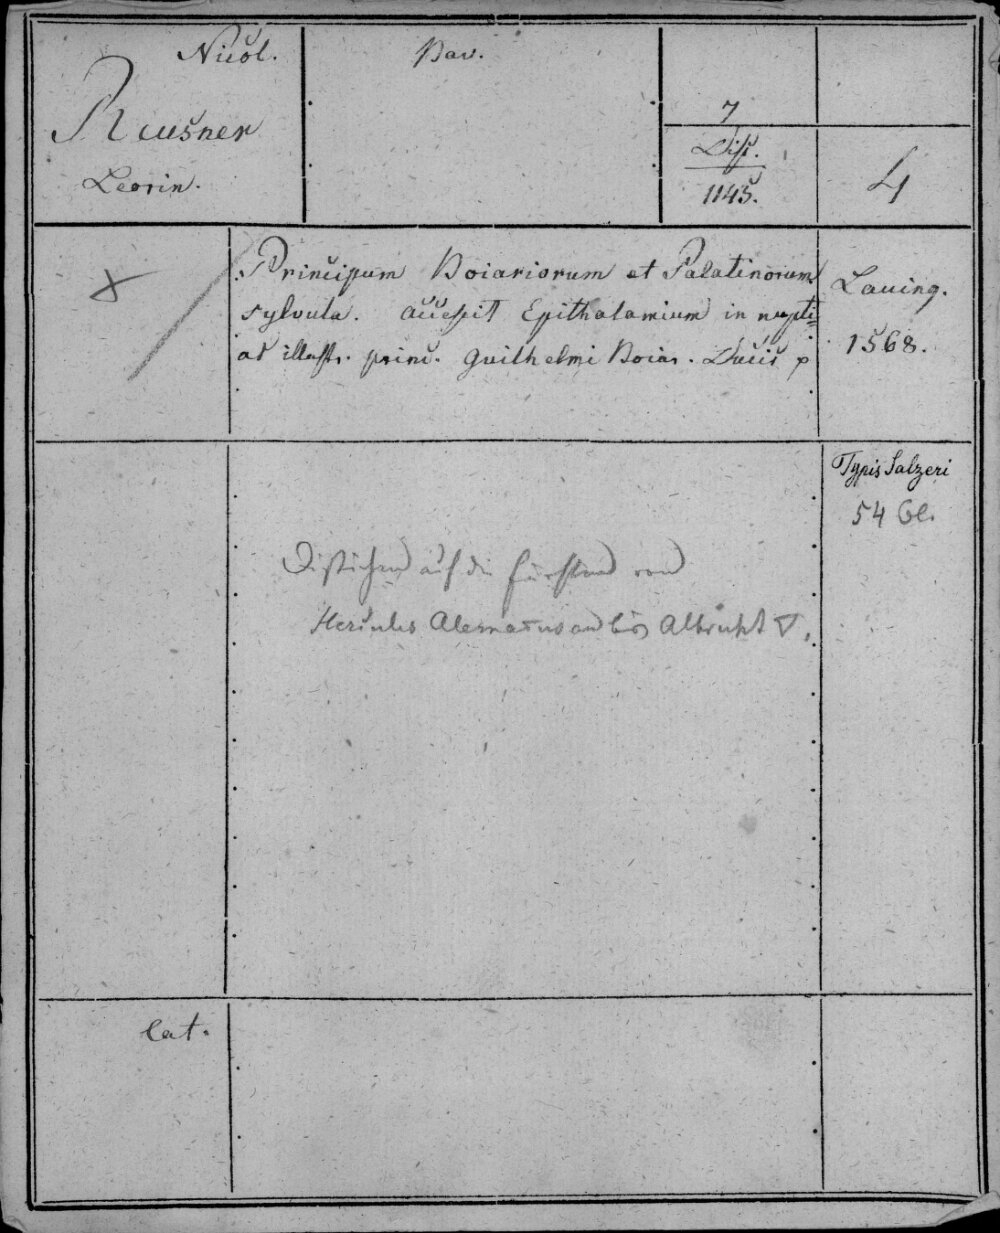 Nicol.
Reusner
Leorin.
Bav.
7
Diss.
1145.
4
Principum Boiariorum et Palatinorum
sylvula. accessit Epithalamium in nupti=
as illustr. princ. Guilhelmi Boiar. Ducis
Lauing.
1568.
Typis Salzeri
54 Bl.
Distichen auf die Fürsten von
Hercules Alemannus an bis Albrecht V.
lat.